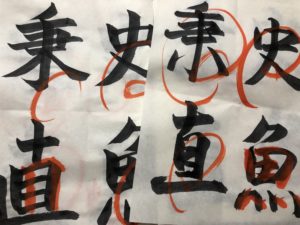 史魚
秉直
史魚
秉直